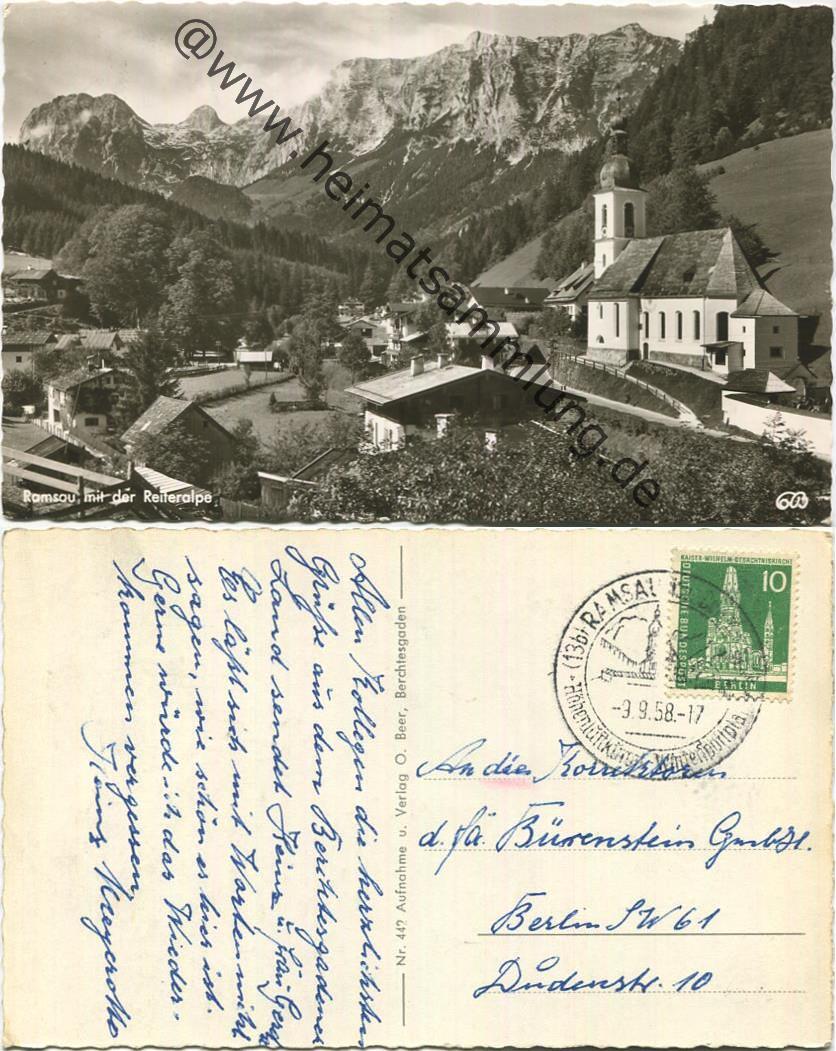 @www.heimatsammlung.de
Ramsau mit der Reiteralpe
Allen Kollegen die herzlichsten
Grüße aus dem Berchtesgadener
Land sendet Heinz u.
Es läßt sich mit Worten nicht
sagen, wie schön es hier ist.
Gerne würde ich das Wieder-
kommen vergessen.
Heinz Meyerotto
Nr. 442 Aufnahme u. Verlag O. Beer, Berchtesgaden
KAISER-WILHELM-GEDÄCHTNISKIRCHE
10
DEUTSCHE BUNDESPOST
BERLIN
(13b) RAMSAU
-9.9.58.-17
An die Korrektoren
d. Fa. Bürenstein GmbH.
Berlin SW 61
Dudenstr. 10